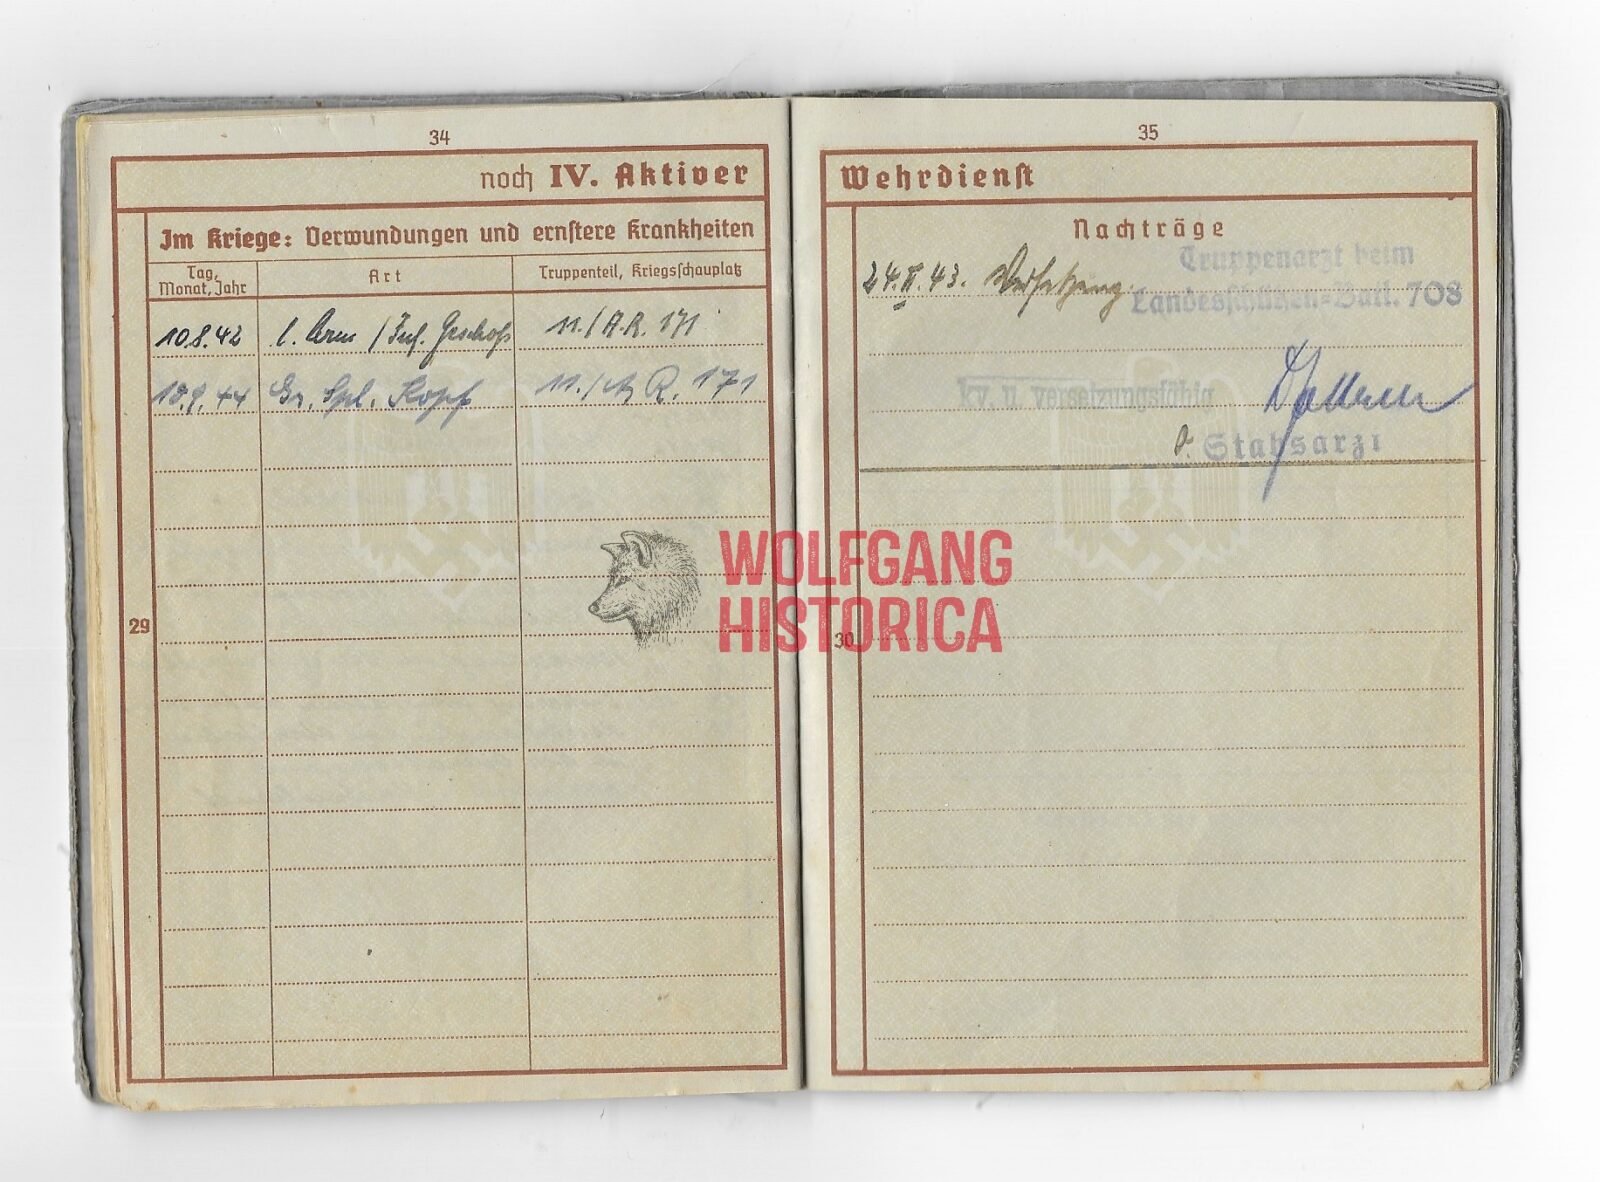 34
noch IV. Aktiver
Im Kriege: Verwundungen und ernstere Krankheiten
Tag, Monat, Jahr
Art
Truppenteil, Kriegsschauplatz
10.8.42 l. Arm / Inf. Geschoß 11./A.R. 171
18.9.44 Gr. Spl. Kopf 11./A.R. 171
29
35
Wehrdienst
Nachträge
24.II.43. Versetzung.
Truppenarzt beim
Landesschützen-Batl. 708
kv. u. versetzungsfähig
Stabsarzt
30
WOLFGANG
HISTORICA